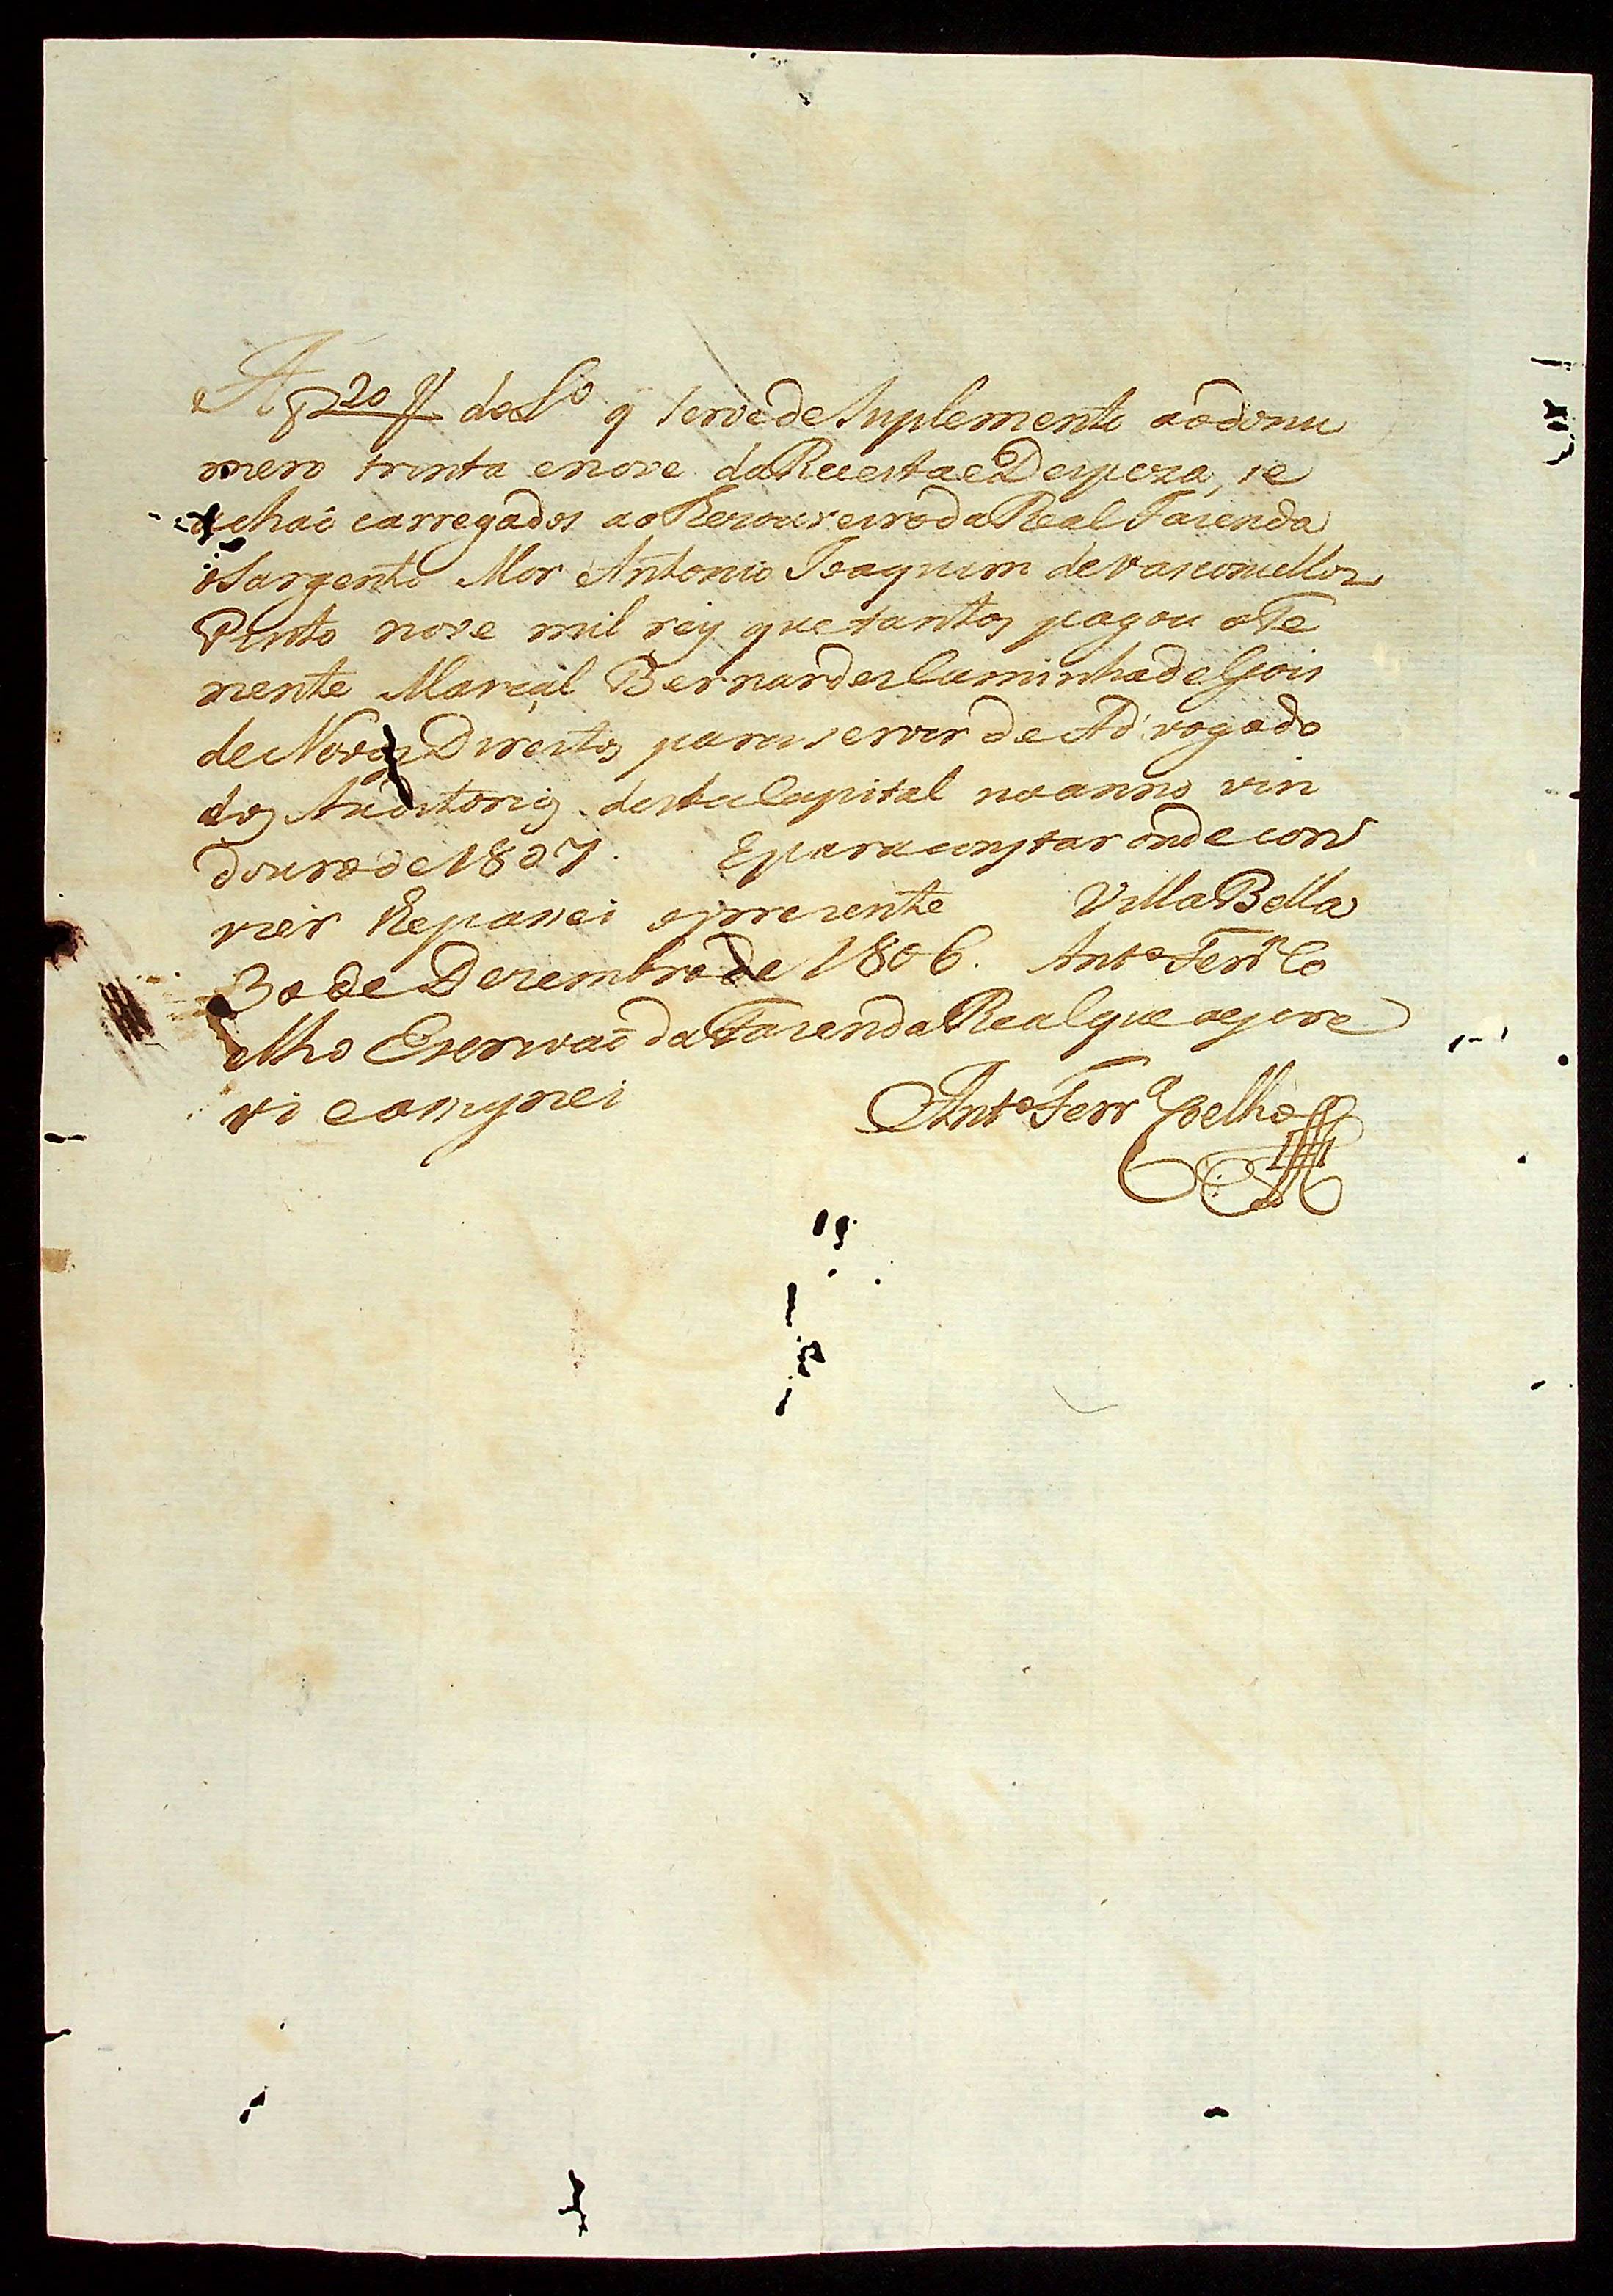 A f 20 do L.o q serve de Suplemento ao do nu
mero trinta e nove da Receita e Despeza, se
achaõ carregados ao Thezoureiro da Real Fazenda
o Sargento Mor Antonio Joaquim de Vasconcellos
Pinto nove mil reis que tantos pagou o Te
nente Marçal Bernardes Caminha de Gois
de Novos Direitos para servir de Advogado
dos Auditorios desta Capital no anno vin
douro de 1807. E para constar onde con
vier lhe passei o prezente Villa Bella
30 de Dezembro de 1806. Ant.o Ferr.a Co
elho Escrivaõ da Fazenda Real que o escre
vi e assignei
Ant.o Ferr.a Coelho